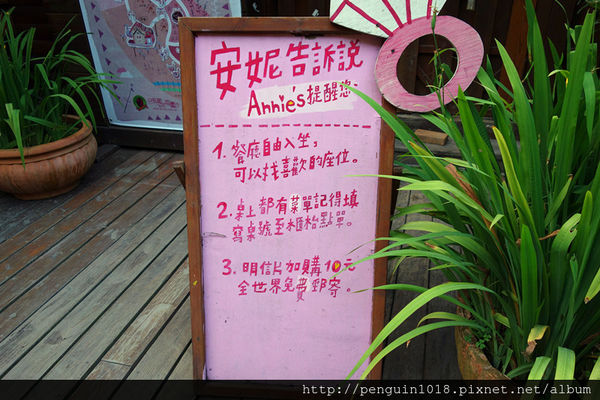 安妮告訴說
Annie's提醒您
1. 餐廳自由入坐,
可以找喜歡的座位。
2. 桌上都有菜單記得填
寫桌號至櫃枱點單。
3. 明信片加購10元
全世界免費郵寄。
http://penguin1018.pixnet.net/album